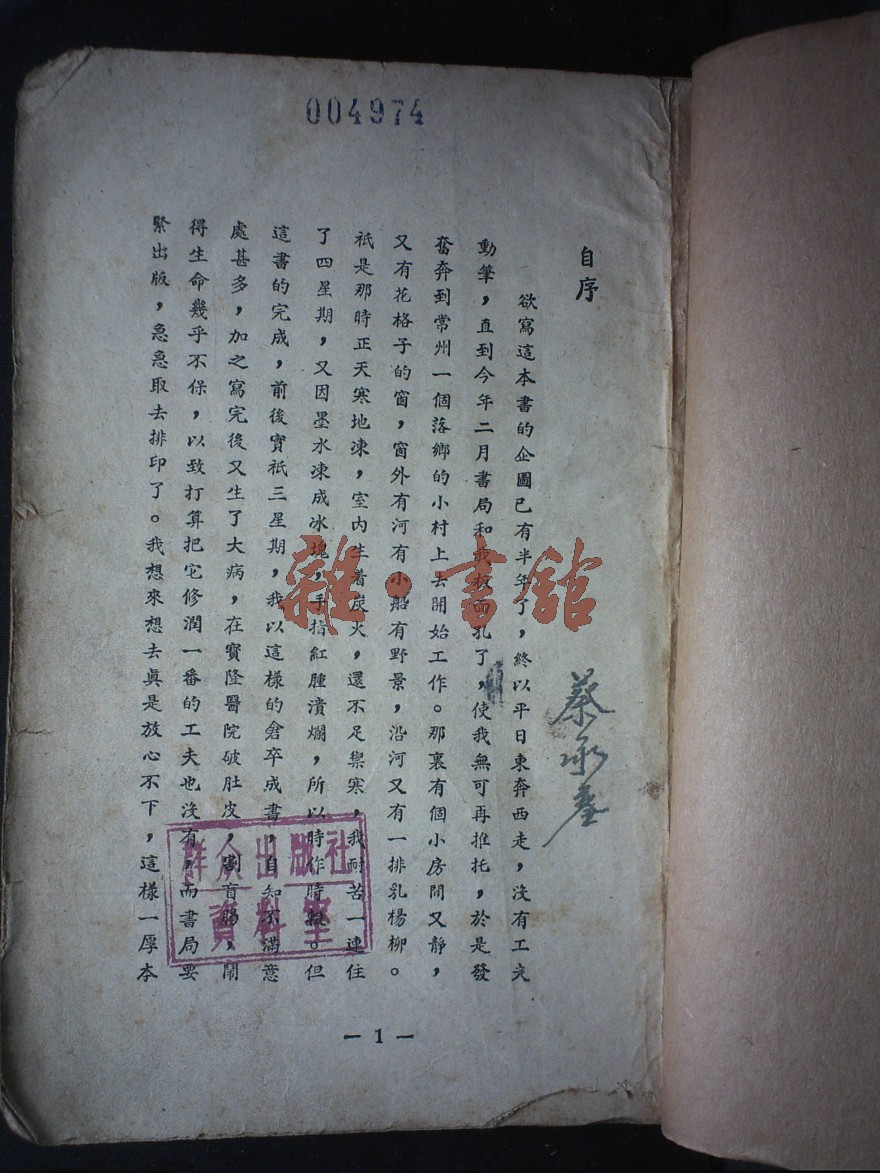 004974
自序
欲寫這本書的企圖已有半年了，終以平日東奔西走，沒有工夫
動筆，直到今年二月書局和我板面孔了，使我無可再推托，於是發
奮奔到常州一個落鄉的小村上去開始工作。那裏有個小房間又靜，
又有花格子的窗，窗外有河有小船有野景，沿河又有一排乳楊柳。
祇是那時正天寒地凍，室內生着炭火，還不足禦寒，我耐苦一連住
了四星期，又因墨水凍成冰塊，手指紅腫潰爛，所以時作時輟。但
這書的完成，前後實祇三星期，我以這樣的倉卒成書，自知不滿意
處甚多，加之寫完後又生了大病，在寶隆醫院破肚皮，割盲腸，鬧
得生命幾乎不保，以致打算把它修潤一番的工夫也沒有，而書局要
緊出版，急急取去排印了。我想來想去眞是放心不下，這樣一厚本
— 1 —
雜·書館
群众出版社
資料室